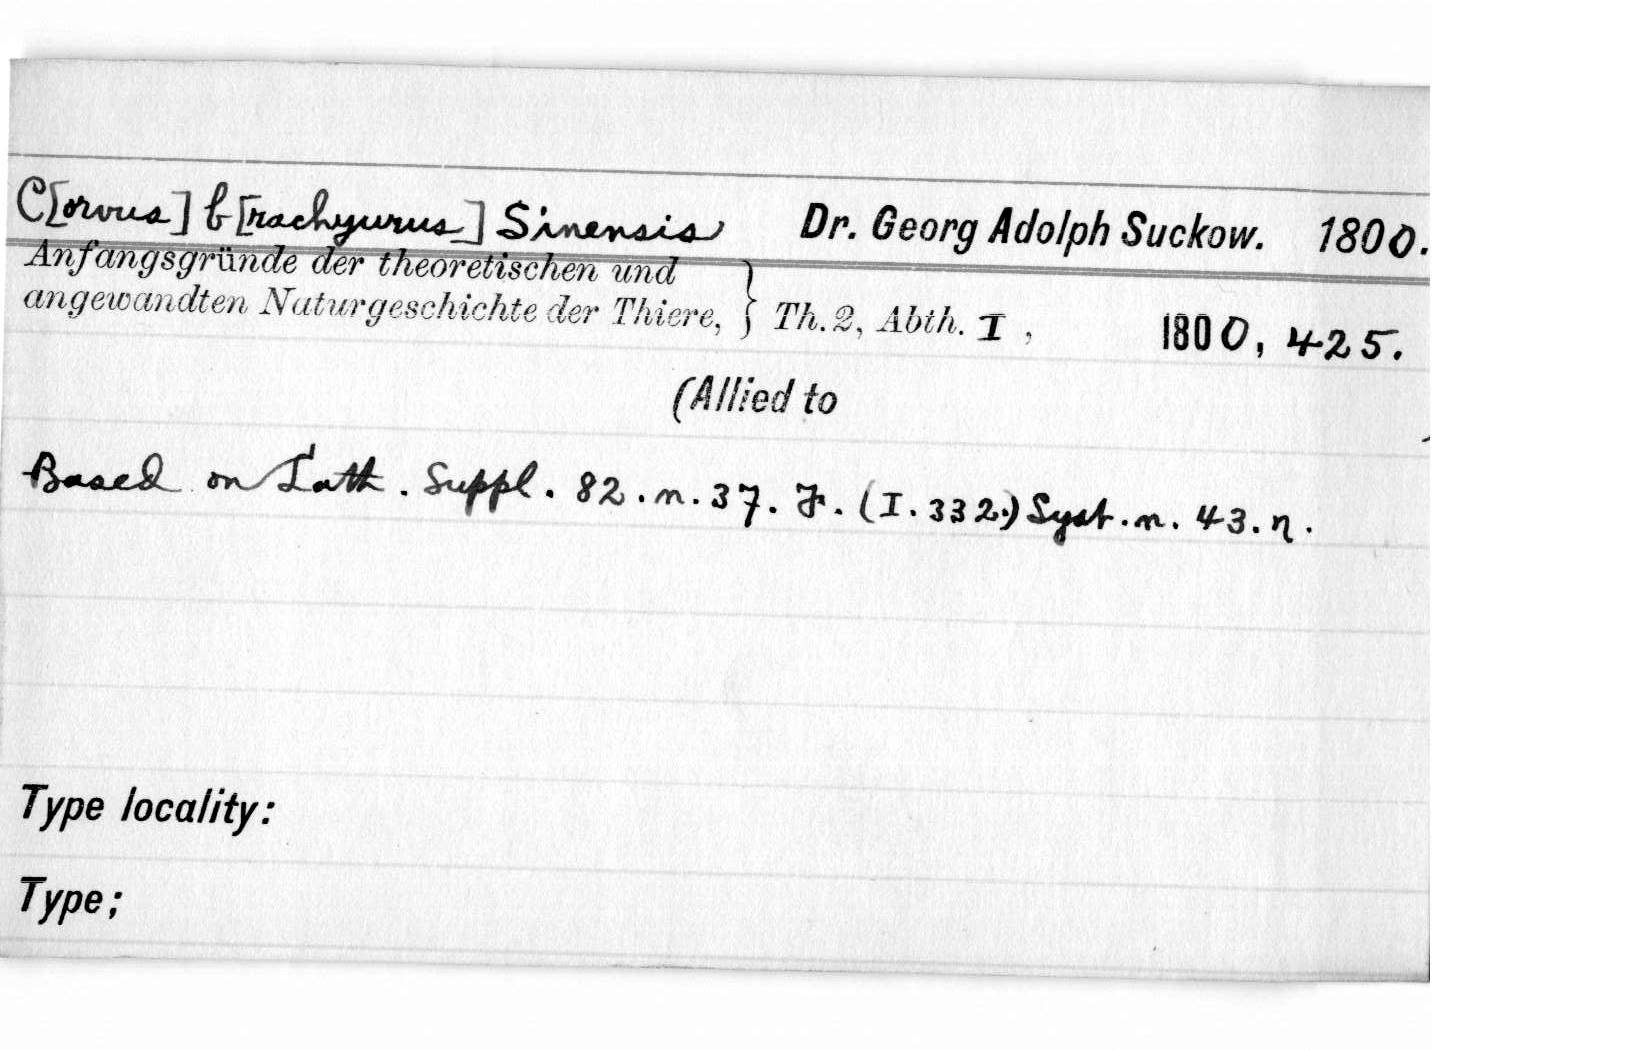 C[orvus] b[rachyurus] Sinensis Dr. Georg Adolph Suckow. 1800.
Anfangsgründe der theoretischen und
angewandten Naturgeschichte der Thiere, } Th. 2, Abth. I, 1800, 425.
(Allied to
Based on Lath. Suppl. 82. n. 37. F. (I. 332.) Syst. n. 43. η.
Type locality:
Type;